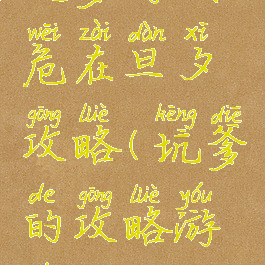 wēi zài dàn xī
危在旦夕
gōng lüè kēng diē
攻略(坑爹
de gōng lüè yóu
的攻略游